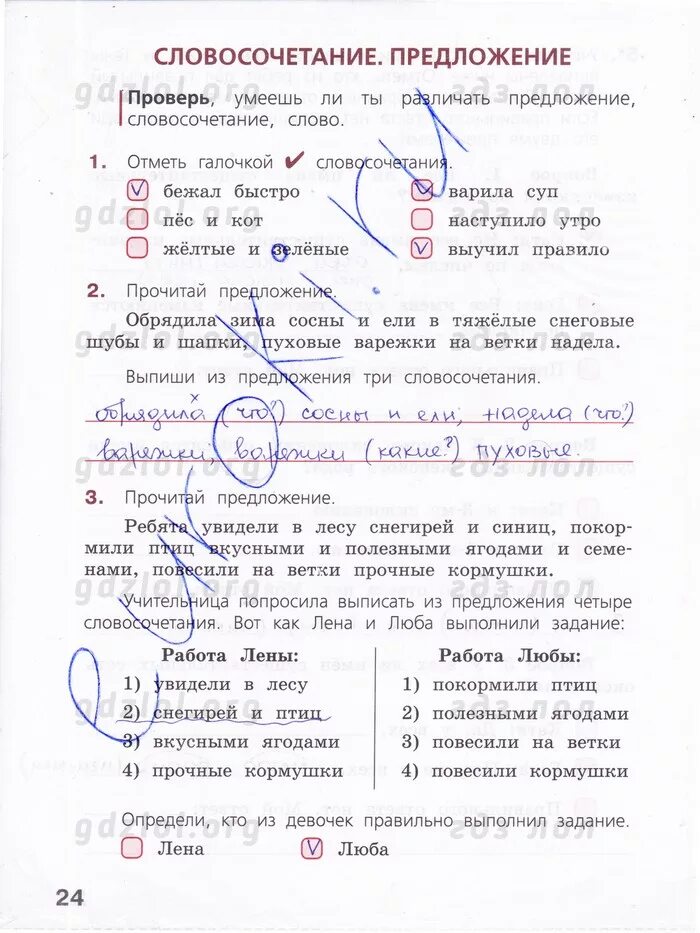 СЛОВОСОЧЕТАНИЕ. ПРЕДЛОЖЕНИЕ
gdzlol.org гдз лол
Проверь, умеешь ли ты различать предложение,
словосочетание, слово.
1. Отметь галочкой ✔ словосочетания.
V бежал быстро V варила суп
gdzlol.org гдз лол
пёс и кот наступило утро
жёлтые и зелёные V выучил правило
2. Прочитай предложение.
Обрядила зима сосны и ели в тяжёлые снеговые
gdzlol.org гдз лол
шубы и шапки, пуховые варежки на ветки надела.
Выпиши из предложения три словосочетания.
обрядила (что?) сосны и ели; надела (что?)
варежки, варежки (какие?) пуховые.
gdzlol.org гдз лол
3. Прочитай предложение.
Ребята увидели в лесу снегирей и синиц, покор-
мили птиц вкусными и полезными ягодами и семе-
нами, повесили на ветки прочные кормушки.
gdzlol.org гдз лол
Учительница попросила выписать из предложения четыре
словосочетания. Вот как Лена и Люба выполнили задание:
Работа Лены: Работа Любы:
1) увидели в лесу 1) покормили птиц
2) снегирей и птиц 2) полезными ягодами
gdzlol.org гдз лол
3) вкусными ягодами 3) повесили на ветки
4) прочные кормушки 4) повесили кормушки
Определи, кто из девочек правильно выполнил задание.
gdzlol.org гдз лол
Лена V Люба
24